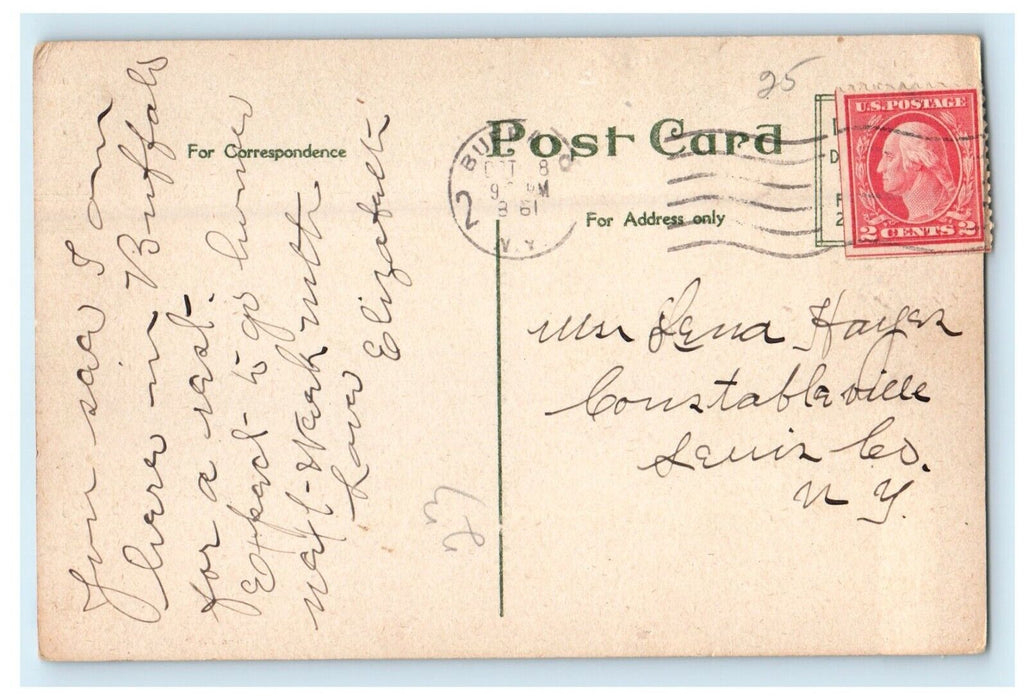 25
Post Card
For Correspondence
For Address only
U.S. POSTAGE
2 CENTS 2
2
OCT 8
N.Y.
You see I am
here in Buffalo
for a rest.
Expect to go home
next week with
Love
Elizabeth
Mrs Lena Hayes
Constableville
Lewis Co.
N Y.